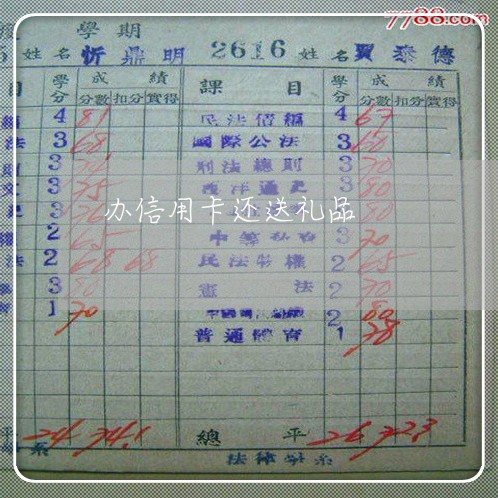 7788.com
學期
姓名 忻鼎明 2616 姓名 賈泰德
目 學分 成績 課目 學分 成績
分數 扣分 實得 分數 扣分 實得
4 81 民法債編 4 67
法 3 68 國際公法 3 60
3 刑法總則 3 70
3 75 西洋通史 3 80
3 3 80
办信用卡还送礼品
2 65 3 70
法 2 68 68 民法物權 2 65
3 80 憲法 2 70
1 70 2 80
普通體育 1 78
平 24 74.1 總平 26 72.3
系 法律學系